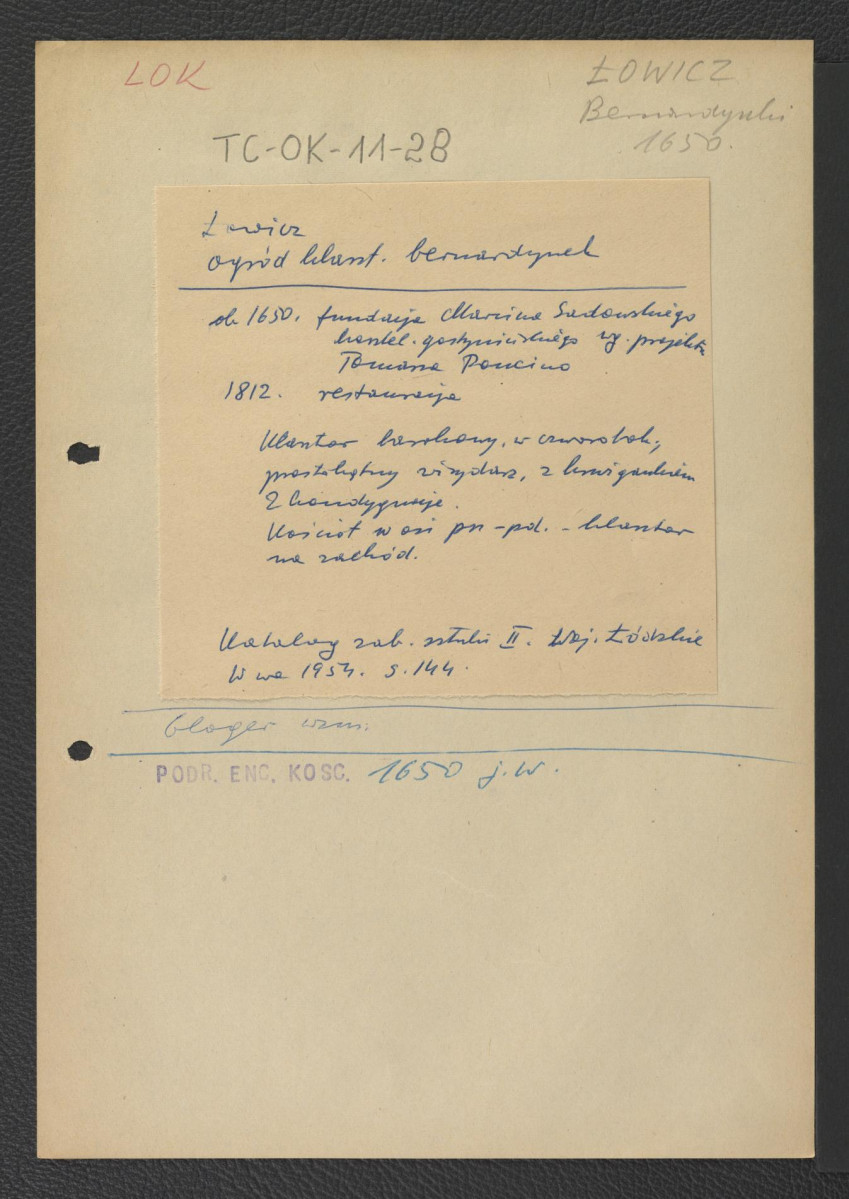 LOK
ŁOWICZ
Bernardynki
1650.
TC-OK-11-28
Łowicz
ogród klaszt. bernardynek
ok 1650. fundacja Marcina Sadowskiego
kasztel. gostynińskiego wg. projektu
Tomasza Poncino
1812. restauracja
Klasztor barokowy, w czworobok,
prostokątny wirydarz, z krużgankiem
2 kondygnacje.
Kościół w osi pn-pd. - klasztor
na zachód.
Katalog zab. sztuki II. Woj. Łódzkie
W-wa 1954. s. 144.
Gloger wzm.
PODR. ENC. KOSC. 1650 j.w.